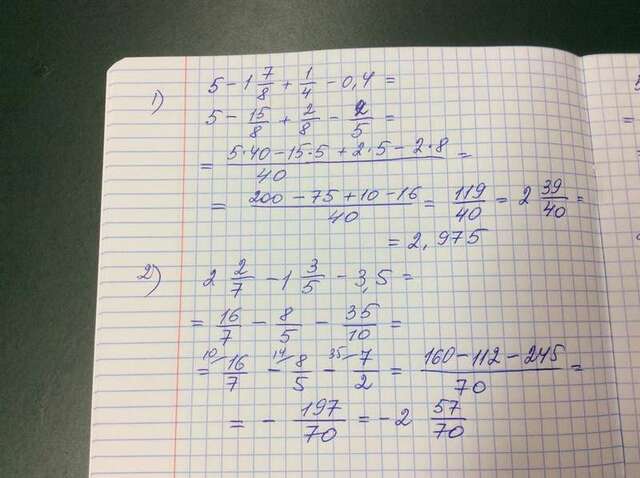 1) 5 - 1 7/8 + 1/4 - 0,4 =
5 - 15/8 + 2/8 - 2/5 =
= (5·40 - 15·5 + 2·5 - 2·8)/40 =
= (200 - 75 + 10 - 16)/40 = 119/40 = 2 39/40 =
= 2,975
2) 2 2/7 - 1 3/5 - 3,5 =
= 16/7 - 8/5 - 35/10 =
= 10/ 16/7 - 14/ 8/5 - 35/ 7/2 = (160 - 112 - 245)/70 =
= - 197/70 = - 2 57/70